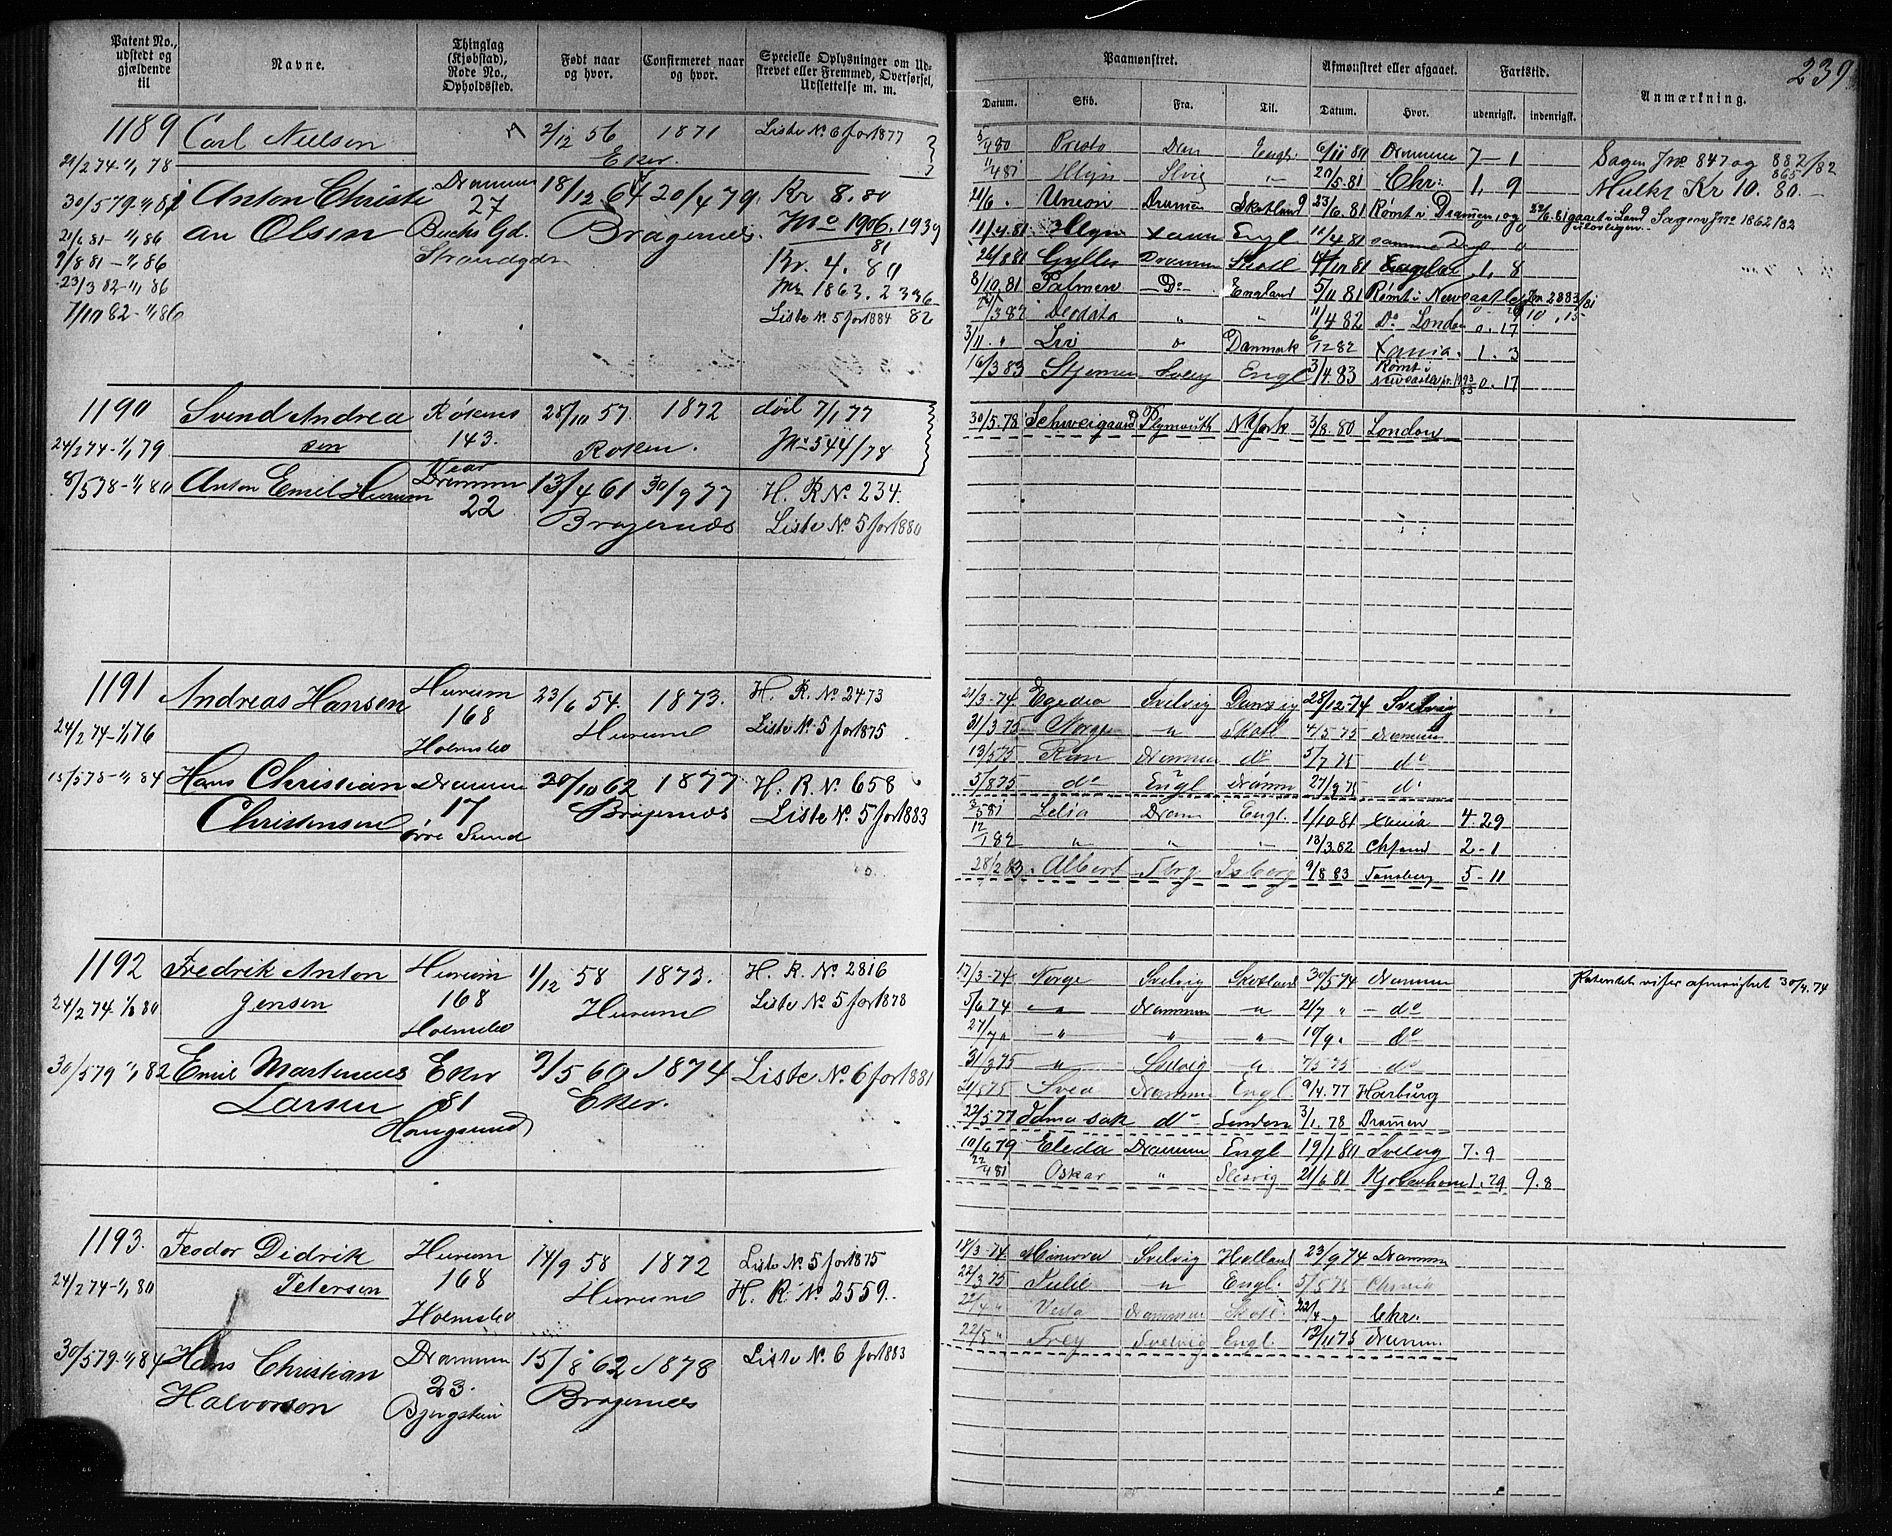 Patent No., udstedt og gjældende til
Navne.
Thinglag (Kjøbstad), Rode No., Opholdssted.
Født naar og hvor.
Confirmeret naar og hvor.
Specielle Oplysninger om Udskrevet eller Fremmed, Overførsel, Udslettelse m. m.
1189 Carl Nielsen 2/12 56 1871 Liste No 6 for 1877
21/2 74-1/1 78 Eker.
Anton Christi Drammen 18/12 64 20/4 79 Kr 8.80
30/5 79
an Olsen 27 Bragernes. No 1906. 1939
21/6 81-1/1 86 Buchs Gd. 81
9/8 81-1/1 86 Strandgden Kr. 4. 80
23/3 82-1/1 86 No 1863. 2336
7/10 82-1/1 86 Liste No 5 for 1884 82
1190 Svend Andrea Røken 28/10 57. 1872 død 7/1 77
24/2 74-1/1 79 sen 143. Roken. No 544/78
8/5 78-1/1 80 Anton Emil Hurum Drammen 13/4 61 30/9 77 H. R No. 234.
22 Bragernæs Liste No. 5 for 1880
1191 Andreas Hansen Hurum 23/6 54. 1873. H. R. No 2473
24/2 74-1/1 76 168 Hurum Liste No 5 for 1875
Holmsbo
15/5 78-1/1 84 Hans Christian Drammen 20/10 62 1877 H. R. No 658
Christensen 17 Bragernæs Liste No. 5 for 1883
øvre Sund
1192 Fredrik Anton Hurum 1/12 58 1873. H. R. No 2816
24/2 74 1/1 80 Jensen 168 Hurum Liste No 5 for 1878
Holmsbo
30/5 79 1/1 82 Emil Martinius Eker 9/5 60 1874 Liste No. 6 for 1881
Larsen 81 Eker.
Hougsund
1193. Feodor Didrik Hurum 14/9 58 1872 Liste No. 5 for 1875
24/2 74-1/1 80 Petersen 168 Hurum H. R. No 2559.
Holmsbo
30/5 79-1/1 84 Hans Christian Drammen 15/8 62 1878 Liste No. 6 for 1883
Halvorsen 23. Bragernæs
Bjergstien
239
Paamønstret.
Afmønstret eller afgaaet.
Fartstid.
Anmærkning.
Datum. Skib. Fra. Til. Datum. Hvor. udenrigsk. indenrigsk.
5/4 80 Drm Engl. 6/11 80 Drammen 7-1 Sagen Jno 847 og 882/82
11/4 81 Svelvig 20/5 81 Chr: 1, 9 Mulkt Kr 10. 80.
21/6 Union Dramen Skotland 23/6. 81 Rømt i Dramen, Sagen Jno 1862/82
11/4 81 Engl 12/4 81 samme Dag
26/8 81 Gylfe Drammen Skotl England 1. 8
8/10 81 Palmen Do England 5/11 81 Rømt i Newcastle Jno 2883/81
Deodata 11/4 82 Do London 0. 17
3/11 Liv Danmark 6/12 82 Xania. 1. 3
16/3 83 Stjernen Svelv Engl 3/4 83 Rømt i Newcastle 0. 17
30/5. 78 Schweigaard Plymouth N York 3/8. 80 London
21/3-74 Egedia Svelvig Danzig 28/12-74 Svelvig
31/3 75 Norge " Skotl 4/5 75 Drammen
13/5 75 Ran Drammen do 5/7 75 do
5/8 75 do Engl Drammen 27/9 75 do
3/5 81 Lelia Dram Engl. 1/10 81 Xania 4. 29
12/1 82 " " " 13/3. 82 Chsand 2-1
28/2 83. Albert 9/8 83 Tønsberg 5-11
17/3-74 Norge Svelvig Skotland 30/5 74 Drammen Patentet viser afmønstret 30/4. 74
5/6 74 " Drammen " 21/7 " do
27/7 " " " " 10/9. do
31/3 75 " Svelvig " 7/5 75 do
21/5 75 Svea Drammen Engl 9/4. 77 Harburg
22/5 77 do London 3/1. 78 Dramen
10/6 79 Eleda Drammen Engl 19/1 80 Svelvig 7. 9
22/4 81 Oskar " Slesvig 21/6 81 Kjobenhavn 1. 29 9. 8
18/3-74. Minerva Svelvig Holland 23/9 74 Drammen
22/3 75 Julie " Engl. 5/5 75
Vesta Drammen Skotl. 22/4 " Chr.
22/5 " Frey Svelvig Engl. 12/11 75 Drammen